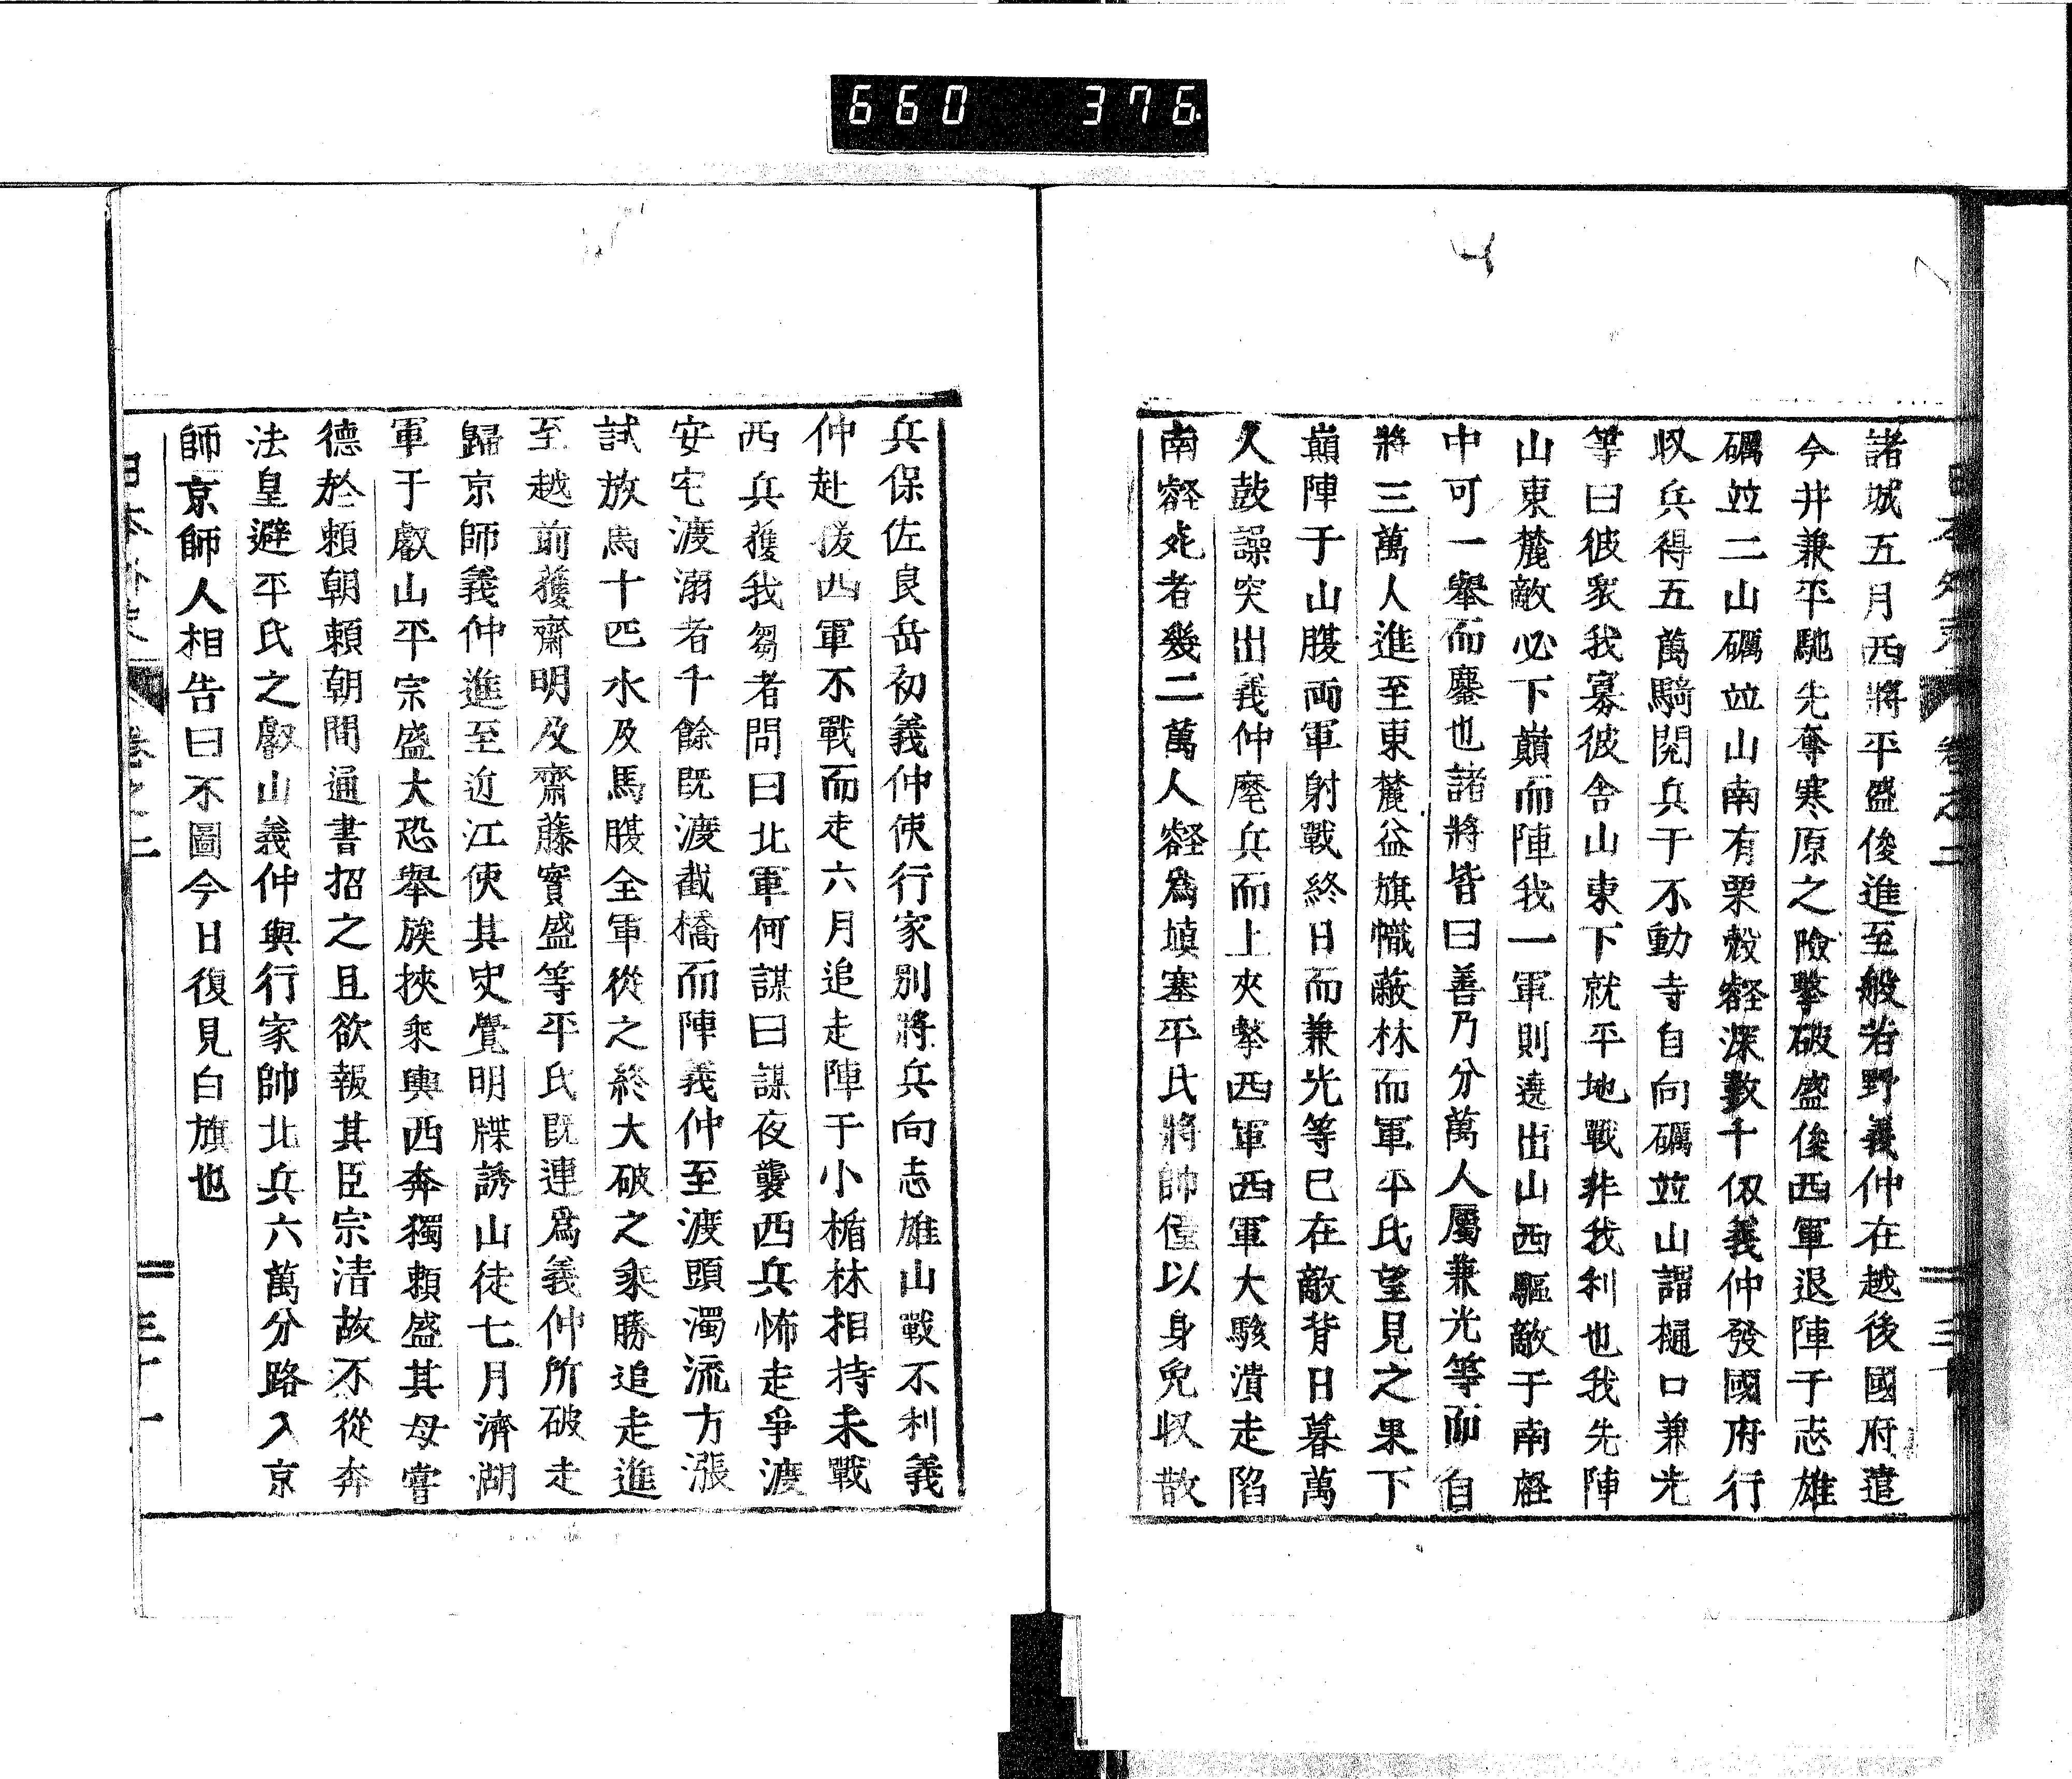 660 376
諸城五月西將平盛俊進至般若野義仲在越後國府遣
今井兼平馳先奪寒原之險擊破盛俊西軍退陣于志雄
礪竝二山礪竝山南有栗殻谿深數千仭義仲發國府行
収兵得五萬騎閱兵于不動寺自向礪竝山謂樋口兼光
等曰彼衆我寡彼舎山東下就平地戰非我利也我先陣
山東麓敵必下巓而陣我一軍則遶出山西驅敵于南谿
中可一舉而鏖也諸將皆曰善乃分萬人屬兼光等而自
將三萬人進至東麓益旗幟蔽林而軍平氏望見之果下
巓陣于山腹両軍射戰終日而兼光等已在敵背日暮萬
人鼓譟突出義仲麾兵而上夾擊西軍西軍大駭潰走陷
南谿死者幾二萬人谿為塡塞平氏將帥僅以身免収散
兵保佐良岳初義仲使行家別將兵向志雄山戰不利義
仲赴援西軍不戰而走六月追走陣于小楯林相持未戰
西兵獲我芻者問曰北軍何謀曰謀夜襲西兵怖走爭渡
安宅渡溺者千餘既渡截橋而陣義仲至渡頭濁流方漲
試放馬十匹水及馬腹全軍從之終大破之乘勝追走進
至越前獲齋明及齋藤實盛等平氏既連爲義仲所破走
歸京師義仲進至近江使其史覺明牒誘山徒七月濟湖
軍于叡山平宗盛大恐舉族挾乘輿西奔獨頼盛其母嘗
德於頼朝頼朝間通書招之且欲報其臣宗清故不從奔
法皇避平氏之叡山義仲與行家帥北兵六萬分路入京
師京師人相告曰不圖今日復見白旗也
卷之二
三十一